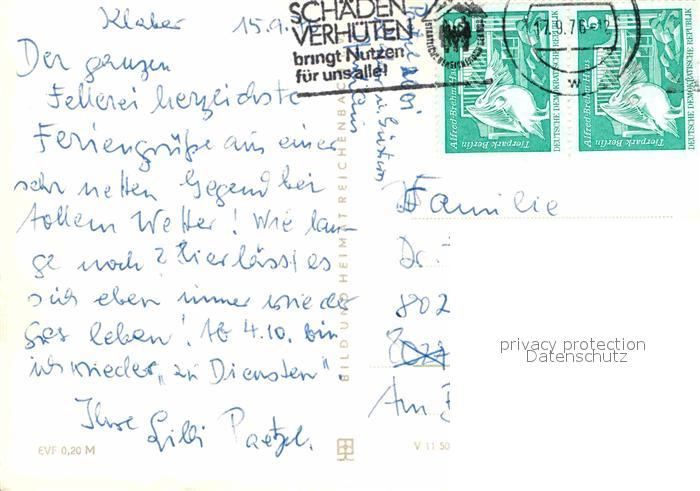 Klaber 15.9.
Der ganzen
Fellerei herzlichste
Feriengrüße aus einer
sehr netten Gegend bei
tollem Wetter! Wie lan-
ge noch? Hier lässt es
sich eben immer wieder
gut leben! Ab 4.10. bin
ich wieder „zu Diensten".
Ihre Lilli Paetzel.
EVP 0,20 M
BILD UND HEIMAT REICHENBACH
V 11 50
SCHÄDEN
VERHÜTEN
bringt Nutzen
für uns alle!
17.9.76-12
W
Alfred-Brehm-Haus
Tierpark Berlin
DEUTSCHE DEMOKRATISCHE REPUBLIK
Alfred-Brehm-Haus
Tierpark Berlin
DEUTSCHE DEMOKRATISCHE REPUBLIK
Familie
Dr.
802
Am
privacy protection
Datenschutz